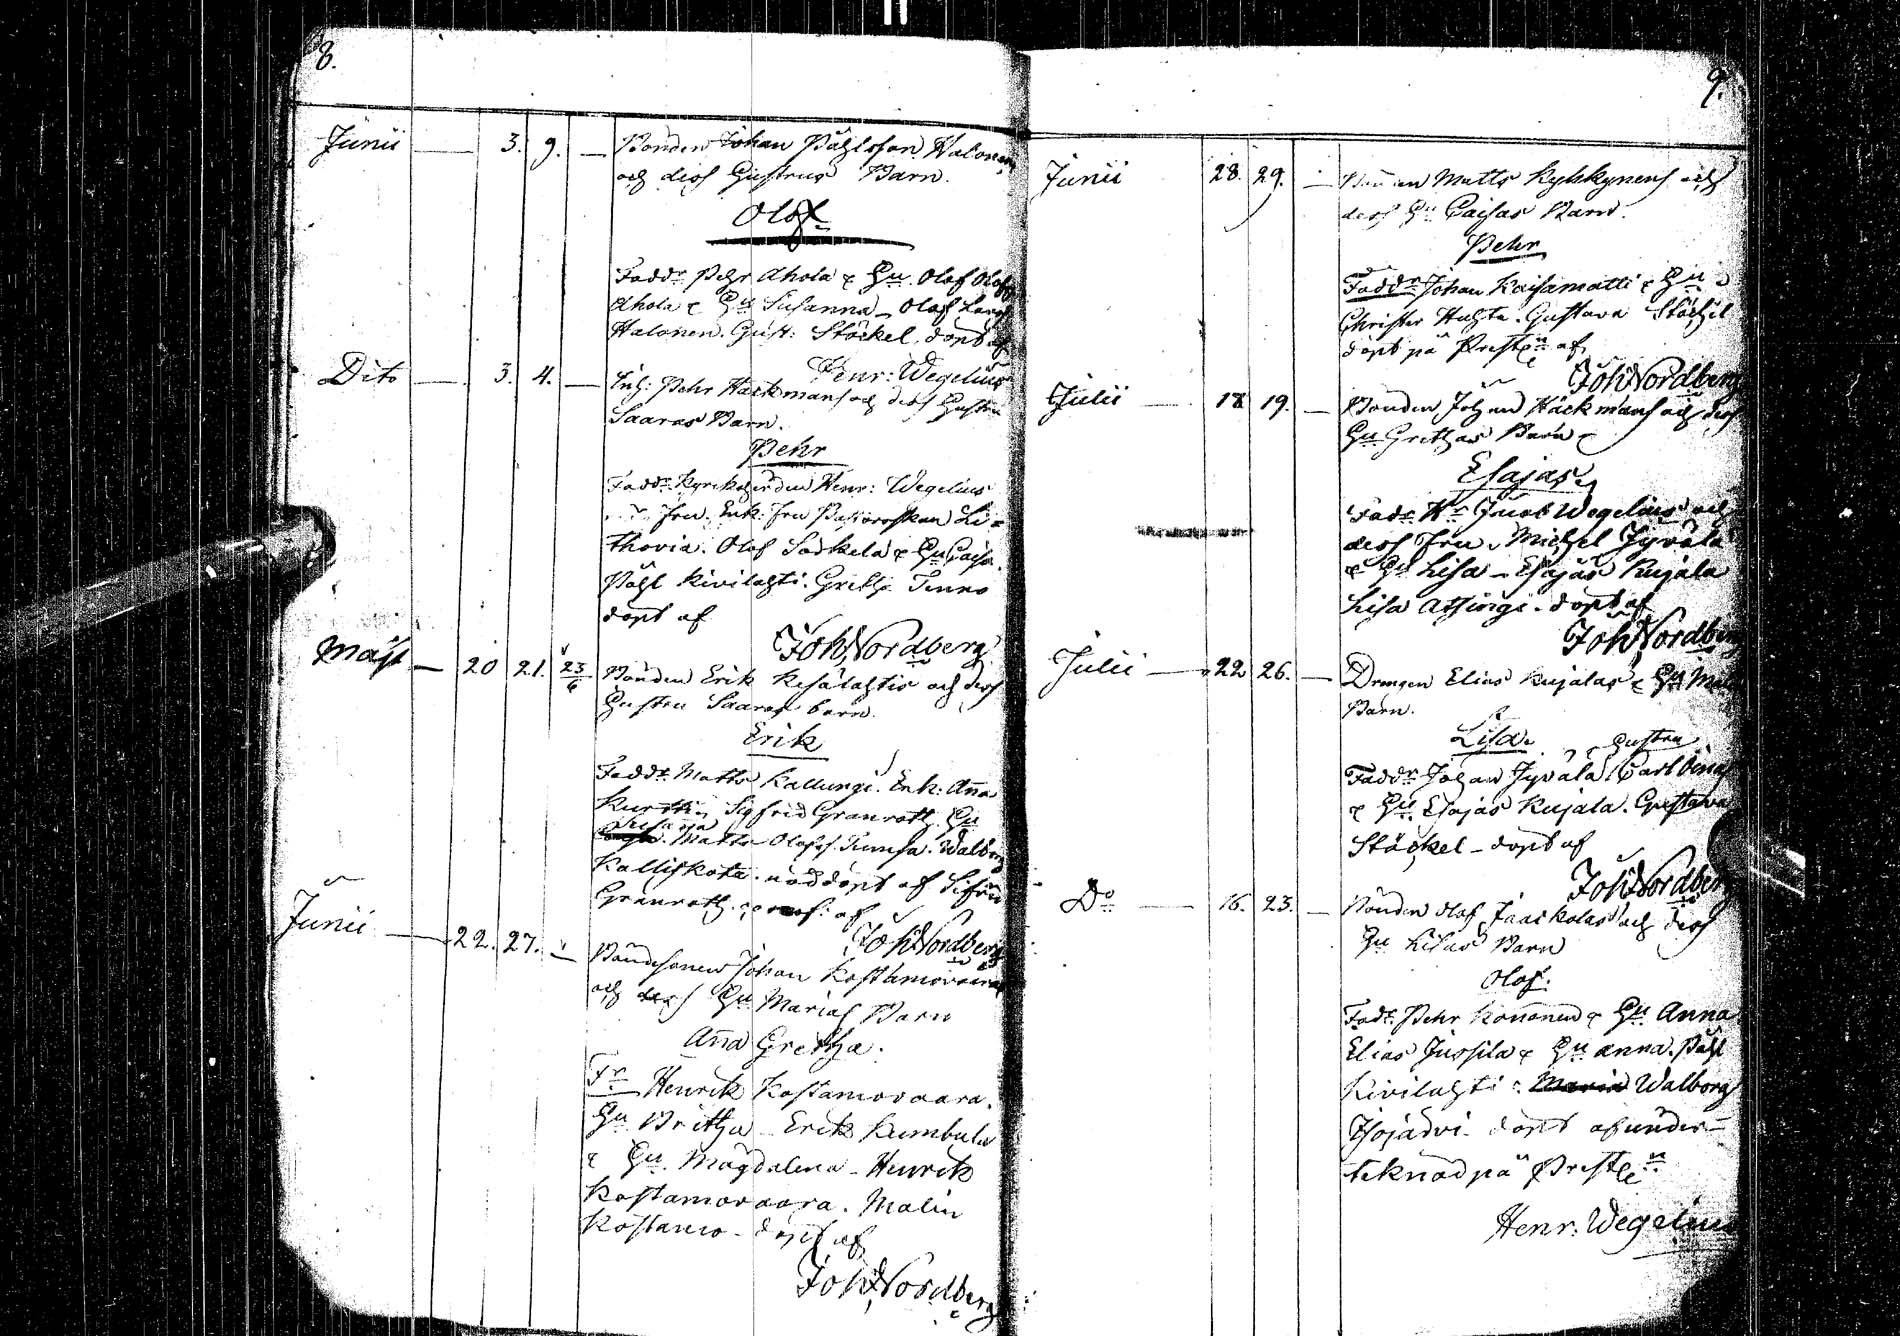 8.
Junii 3. 9. Bonden Johan Påhlsson Halonens
och dess Hustrus Barn.
Olof
Faddr. Pehr Ahola & Hu. Olof Olofs
Ahola & Hu Susanna - Olof Lars
Halonen. Gust: Stöckel, döpt af
Henr: Wegelius
Dito 3. 4. Inh: Pehr Hackmans och dess Hustru
Saaras Barn.
Pehr
Faddr. Kyrkoherden Henr: Wegelius
Fru. Enk: Fru Pastorskan Li=
thovia. Olof Sadkela & Hu Caisa.
Påhl Kivilahti. Greta Tenno
döpt af
Joh Nordberg
Maji 20 21. 23/6 Bonden Erik Kesälahtis och dess
Hustru Saaras barn.
Erik
Faddr. Matts Kallungi. Enk: Anna
Sigfrid Granroth. Hu
Susanna. Matts Olofss. Walborg
Kalliskota. nöddöpt af Sifrid
Granroth. af
Joh Nordberg
Junii 22. 27. Bondesonen Johan Kostamovaaras
och dess Hu Marias Barn
Anna Gretha.
Fr Henrik Kostamovaara.
Hu Britha - Erik Kumbula
& Hu. Magdalena - Henrik
Kostamovaara. Malin
Kostamo - döpt af
Joh Nordberg
9.
Junii 28. 29. Bonden Matts Kyhkynens och
dess Hu Caisas Barn.
Pehr
Faddr Johan Kaisamatti & Hu
Christer Huhta. Gustava Stöckel
döpt på Prestg af
Joh Nordberg
Julii 18 19. Bonden Johan Häckmans och dess
Hu Grethas Barn
Esajas
Fadr Hr Jacob Wegelius och
dess Fru. Michel Jyvälä
& Hu Lisa - Esajas Kujala
Lisa Assingi - döpt af
Joh Nordberg
Julii 22 26. Drengen Elias Kujalas & Hu
Barn.
Lisa. Hustru
Faddr Johan Jyvälä Carl
& Hu Esajas Kujala. Gustava
Stöckel - döpt af
Joh Nordberg
Do 16. 23. Bonden Olof Jaaskolas och dess
Hu Lisas Barn
Olof.
Fadr. Pehr Kononen & Hu Anna
Elias Jussila & Hu Anna. Påhl
Kivilahti Walborg
döpt af under=
teknad på Prestg
Henr: Wegelius